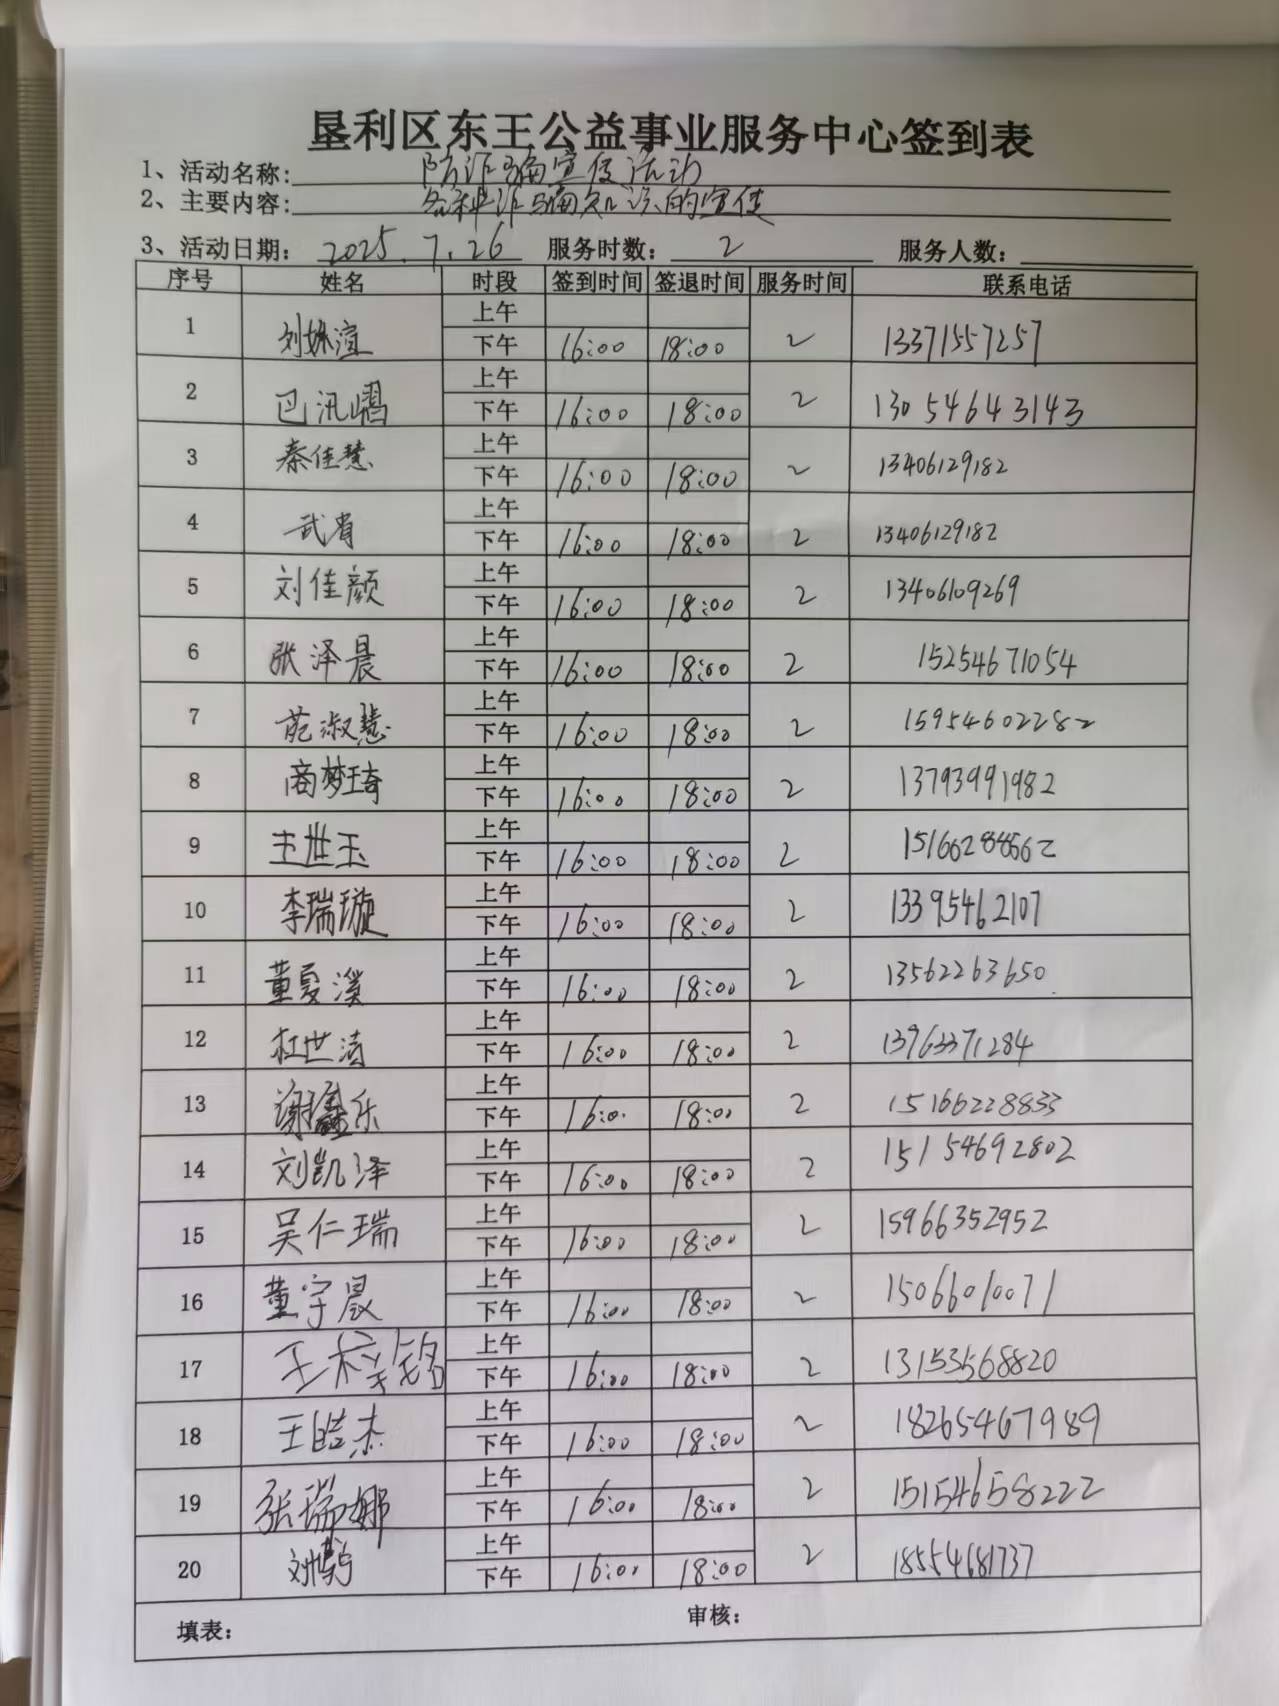 垦利区东王公益事业服务中心签到表
1、活动名称: 防诈骗宣传活动
2、主要内容: 各种诈骗知识的宣传
3、活动日期: 2025.7.26 服务时数: 2 服务人数:
序号 姓名 时段 签到时间 签退时间 服务时间 联系电话
1 刘姝渲 上午
下午 16:00 18:00 2 13371557257
2 巴汛嶍 上午
下午 16:00 18:00 2 13054643143
3 秦佳慧 上午
下午 16:00 18:00 2 13406129182
4 武肯 上午
下午 16:00 18:00 2 13406129182
5 刘佳颜 上午
下午 16:00 18:00 2 13406109269
6 张泽晨 上午
下午 16:00 18:00 2 15254671054
7 范淑慧 上午
下午 16:00 18:00 2 15954602282
8 商梦琦 上午
下午 16:00 18:00 2 13793991982
9 王世玉 上午
下午 16:00 18:00 2
10 李瑞璇 上午
下午 16:00 18:00 2 13395462107
11 董夏溪 上午
下午 16:00 18:00 2 13562263650
12 杜世清 上午
下午 16:00 18:00 2 13963371284
13 谢鑫乐 上午
下午 16:00 18:00 2 15166228833
14 刘凯泽 上午
下午 16:00 18:00 2 15154692802
15 吴仁瑞 上午
下午 16:00 18:00 2 15966352952
16 董宇晨 上午
下午 16:00 18:00 2 15066010071
17 王梓铭 上午
下午 16:00 18:00 2 13153568820
18 王皓杰 上午
下午 16:00 18:00 2 18265467989
19 张瑞娜 上午
下午 16:00 18:00 2 15154658222
20 上午
下午 16:00 18:00 2 18554681737
填表: 审核: